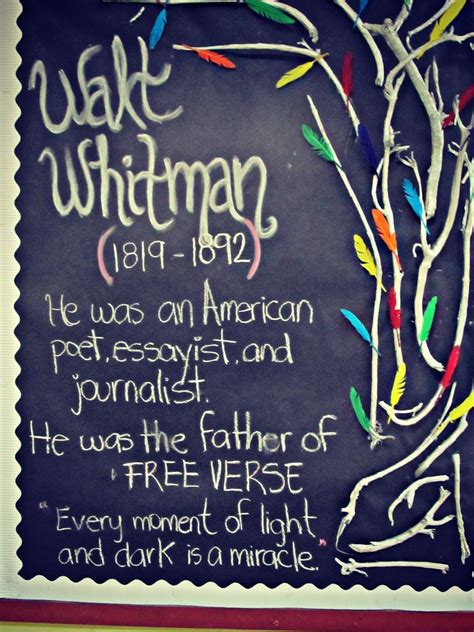 Walt
Whitman
(1819-1892)
He was an American
poet, essayist, and
journalist.
He was the father of
FREE VERSE
"Every moment of light
and dark is a miracle."